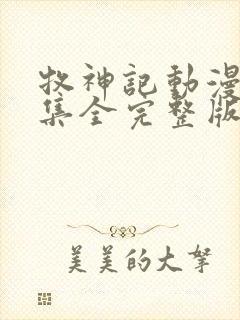 牧神記動漫
集全完整版
美美的大拏